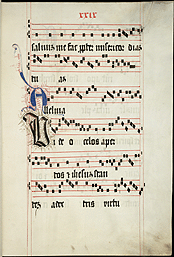 xxix
saluum me fac ppter misericor dias
tu as
Alleluia
Vi de o celos aper
tos z ihesum stan
tem a dex tris virtu